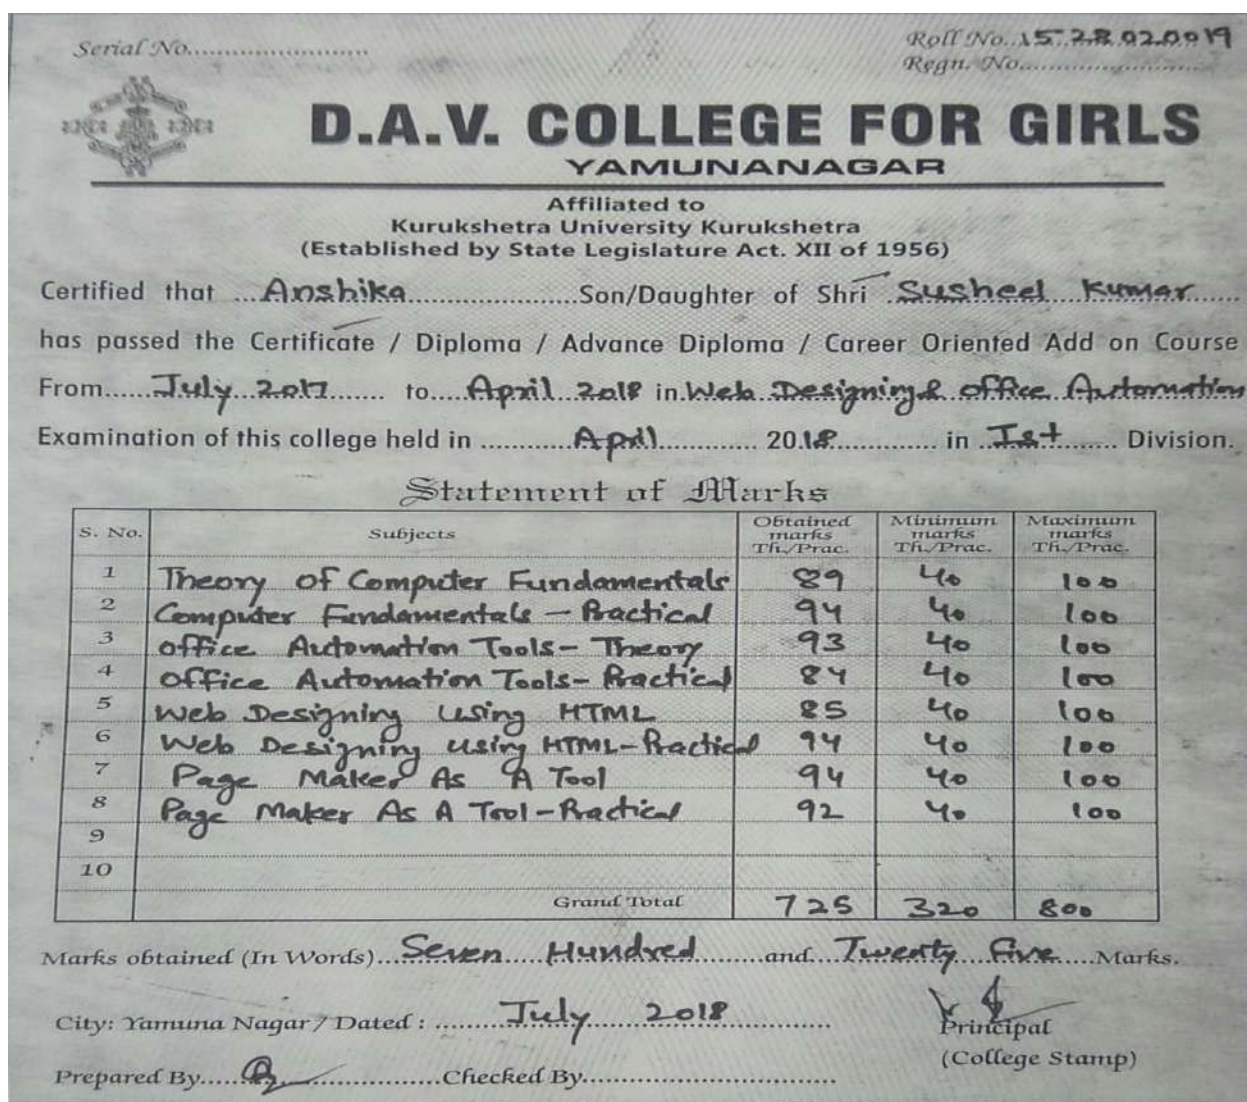 Serial No........................
Roll No. 1528020019
Regn. No........................
D.A.V. COLLEGE FOR GIRLS
YAMUNANAGAR
Affiliated to
Kurukshetra University Kurukshetra
(Established by State Legislature Act. XII of 1956)
Certified that ...Anshika....................Son/Daughter of Shri .Susheel Kumar......
has passed the Certificate / Diploma / Advance Diploma / Career Oriented Add on Course
From......July 2017....... to.....April 2018 in.Web Designing & office Automation
Examination of this college held in ............April............ 2018............... in ..Ist........ Division.
Statement of Marks
S. No. Subjects Obtained marks Th./Prac. Minimum marks Th./Prac. Maximum marks Th./Prac.
1 Theory of Computer Fundamentals 89 40 100
2 Computer Fundamentals - Practical 94 40 100
3 office Automation Tools - Theory 93 40 100
4 office Automation Tools - Practical 84 40 100
5 Web Designing using HTML 85 40 100
6 Web Designing using HTML - Practical 94 40 100
7 Page Maker As A Tool 94 40 100
8 Page Maker As A Tool - Practical 92 40 100
9
10
Grand Total 725 320 800
Marks obtained (In Words)...Seven Hundred........and...Twenty Five.....Marks.
City: Yamuna Nagar / Dated : .........July 2018...............
Principal
(College Stamp)
Prepared By........................Checked By..............................